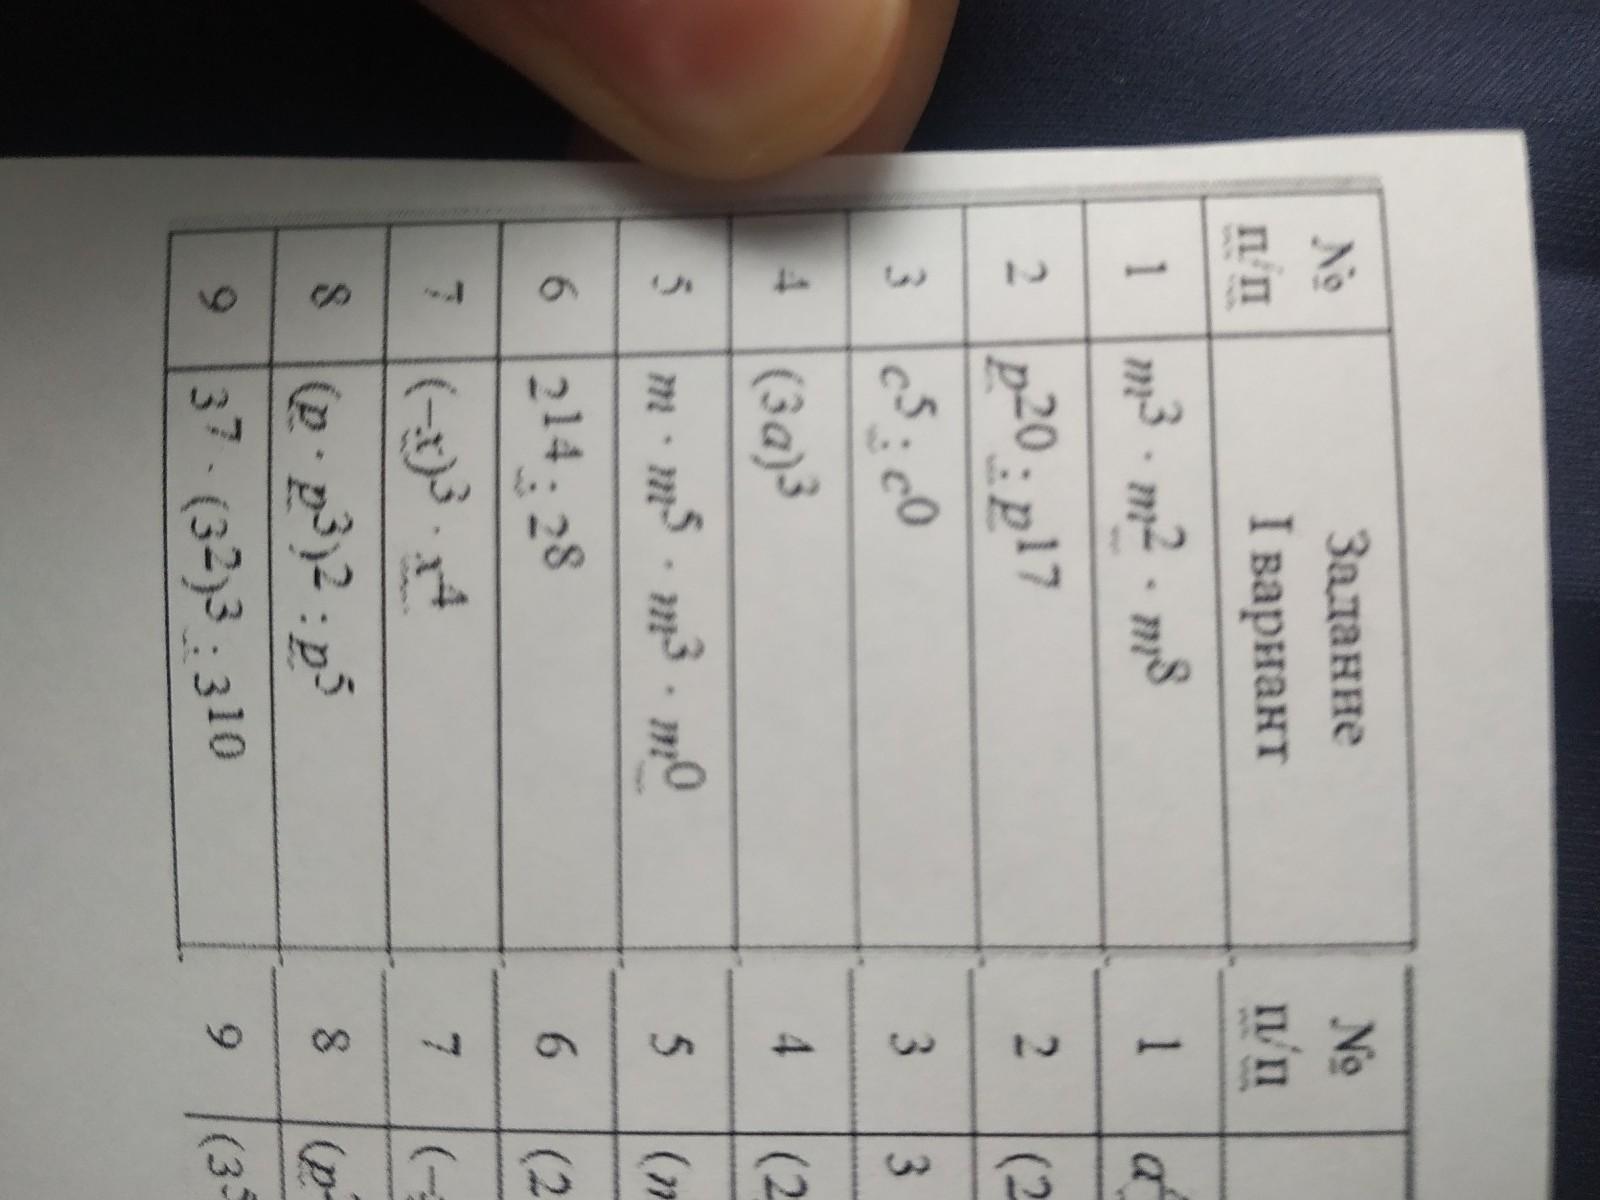 № п/п
Задание
I вариант
1 m³ · m² · m⁸
2 p²⁰ : p¹⁷
3 c⁵ : c⁰
4 (3a)³
5 m · m⁵ · m³ · m⁰
6 2¹⁴ : 2⁸
7 (−x)³ · x⁴
8 (p · p³)² : p⁵
9 3⁷ · (3²)³ : 3¹⁰
№ п/п
1 a
2 (2
3 3
4 (2
5
6 (2
7 (−
8 (p
9 (3⁵